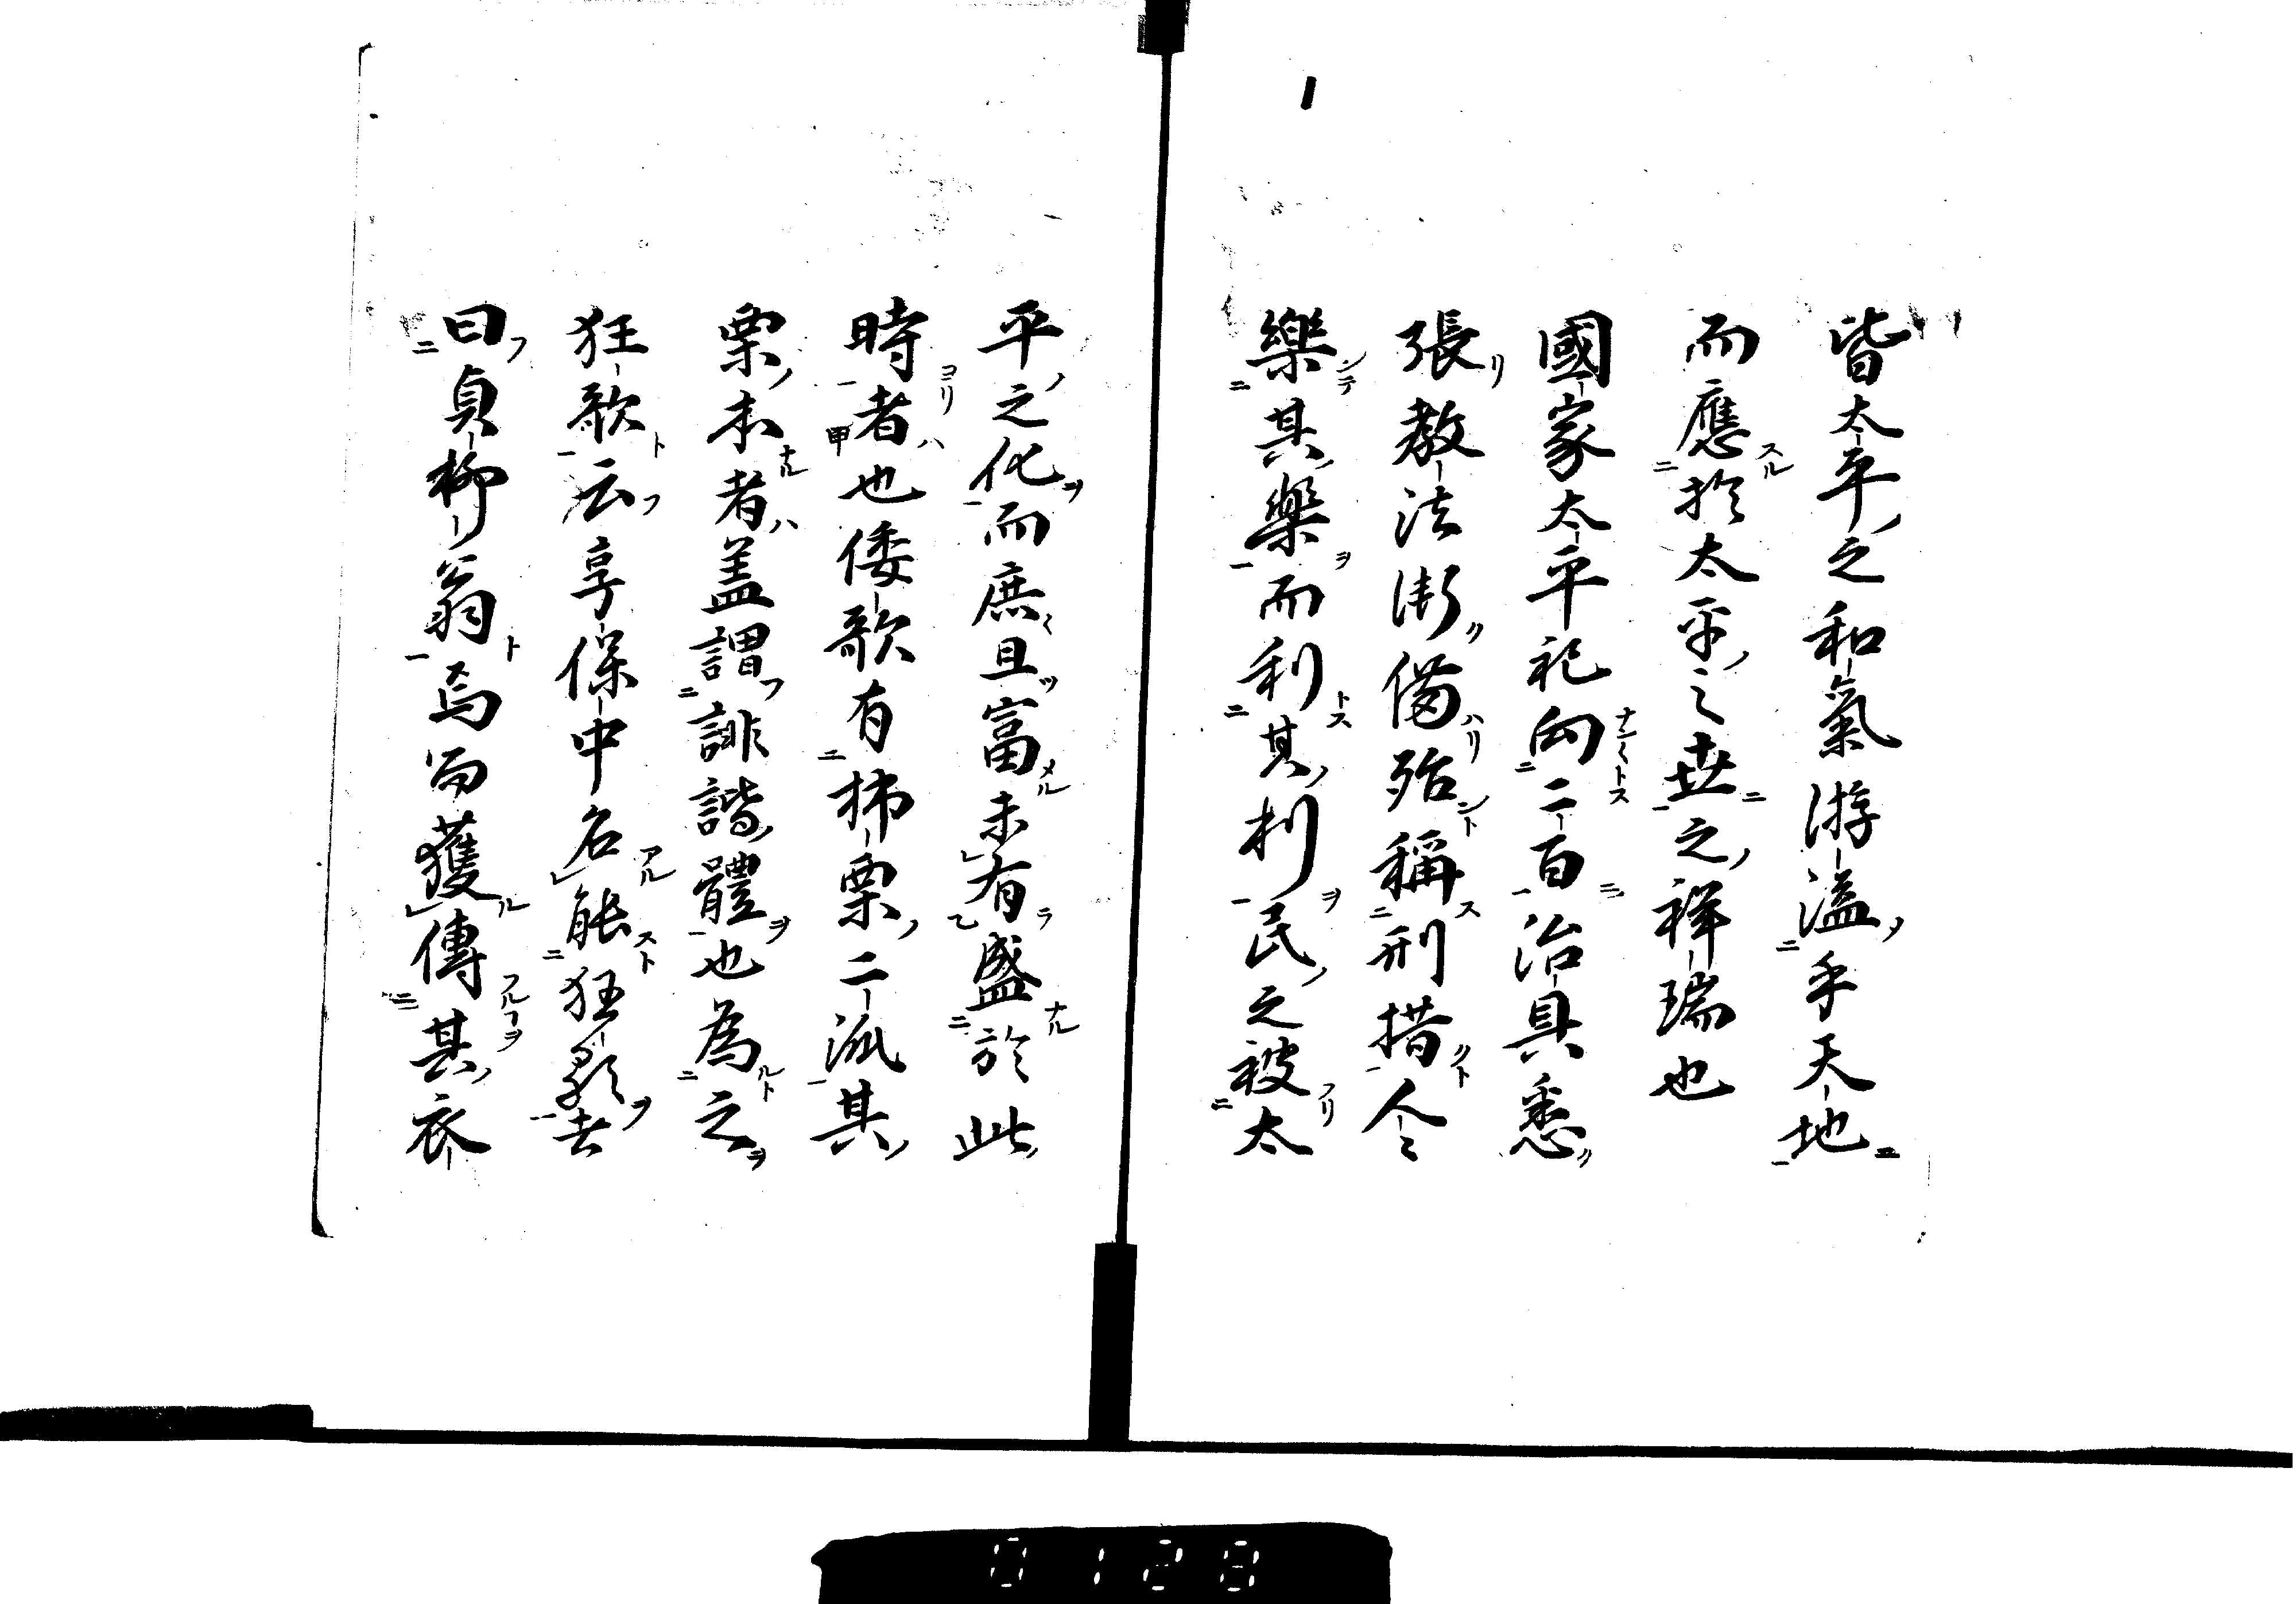 皆太平之和氣游溢乎天地
而應於太平之世之祥瑞也
國家太平祀向二百治具悉
張教法術備殆稱刑措今
樂其樂而利其利民之被太
平之化而庶且富未有盛於此
時者也倭歌有柿栗二派其
栗本者盖謂誹諧體也為之
狂歌云享保中名能狂歌者
曰貞柳翁焉而獲傳其衣
0128